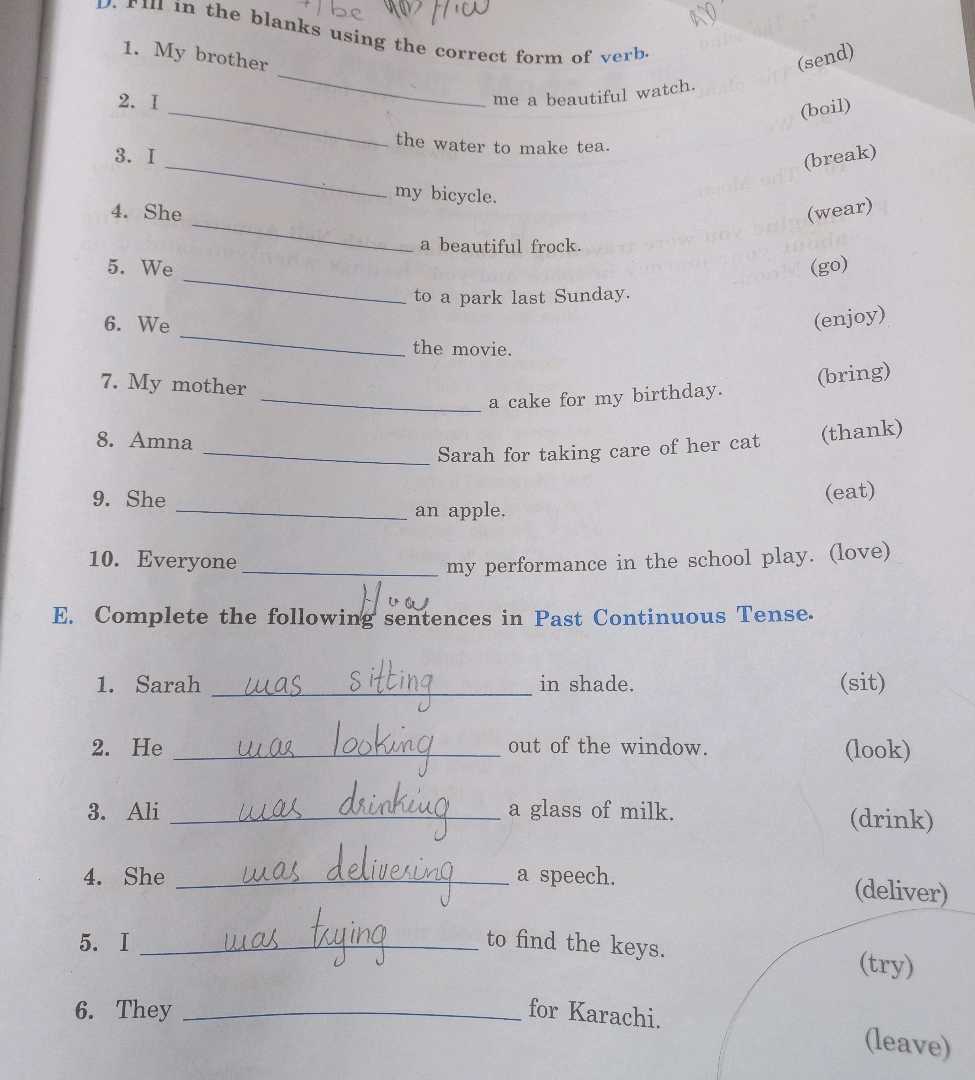 D. Fill in the blanks using the correct form of verb.
1. My brother ____________ me a beautiful watch. (send)
2. I ____________ the water to make tea. (boil)
3. I ____________ my bicycle. (break)
4. She ____________ a beautiful frock. (wear)
5. We ____________ to a park last Sunday. (go)
6. We ____________ the movie. (enjoy)
7. My mother ____________ a cake for my birthday. (bring)
8. Amna ____________ Sarah for taking care of her cat (thank)
9. She ____________ an apple. (eat)
10. Everyone ____________ my performance in the school play. (love)
E. Complete the following sentences in Past Continuous Tense.
1. Sarah was sitting in shade. (sit)
2. He was looking out of the window. (look)
3. Ali was drinking a glass of milk. (drink)
4. She was delivering a speech. (deliver)
5. I was trying to find the keys. (try)
6. They ____________ for Karachi. (leave)